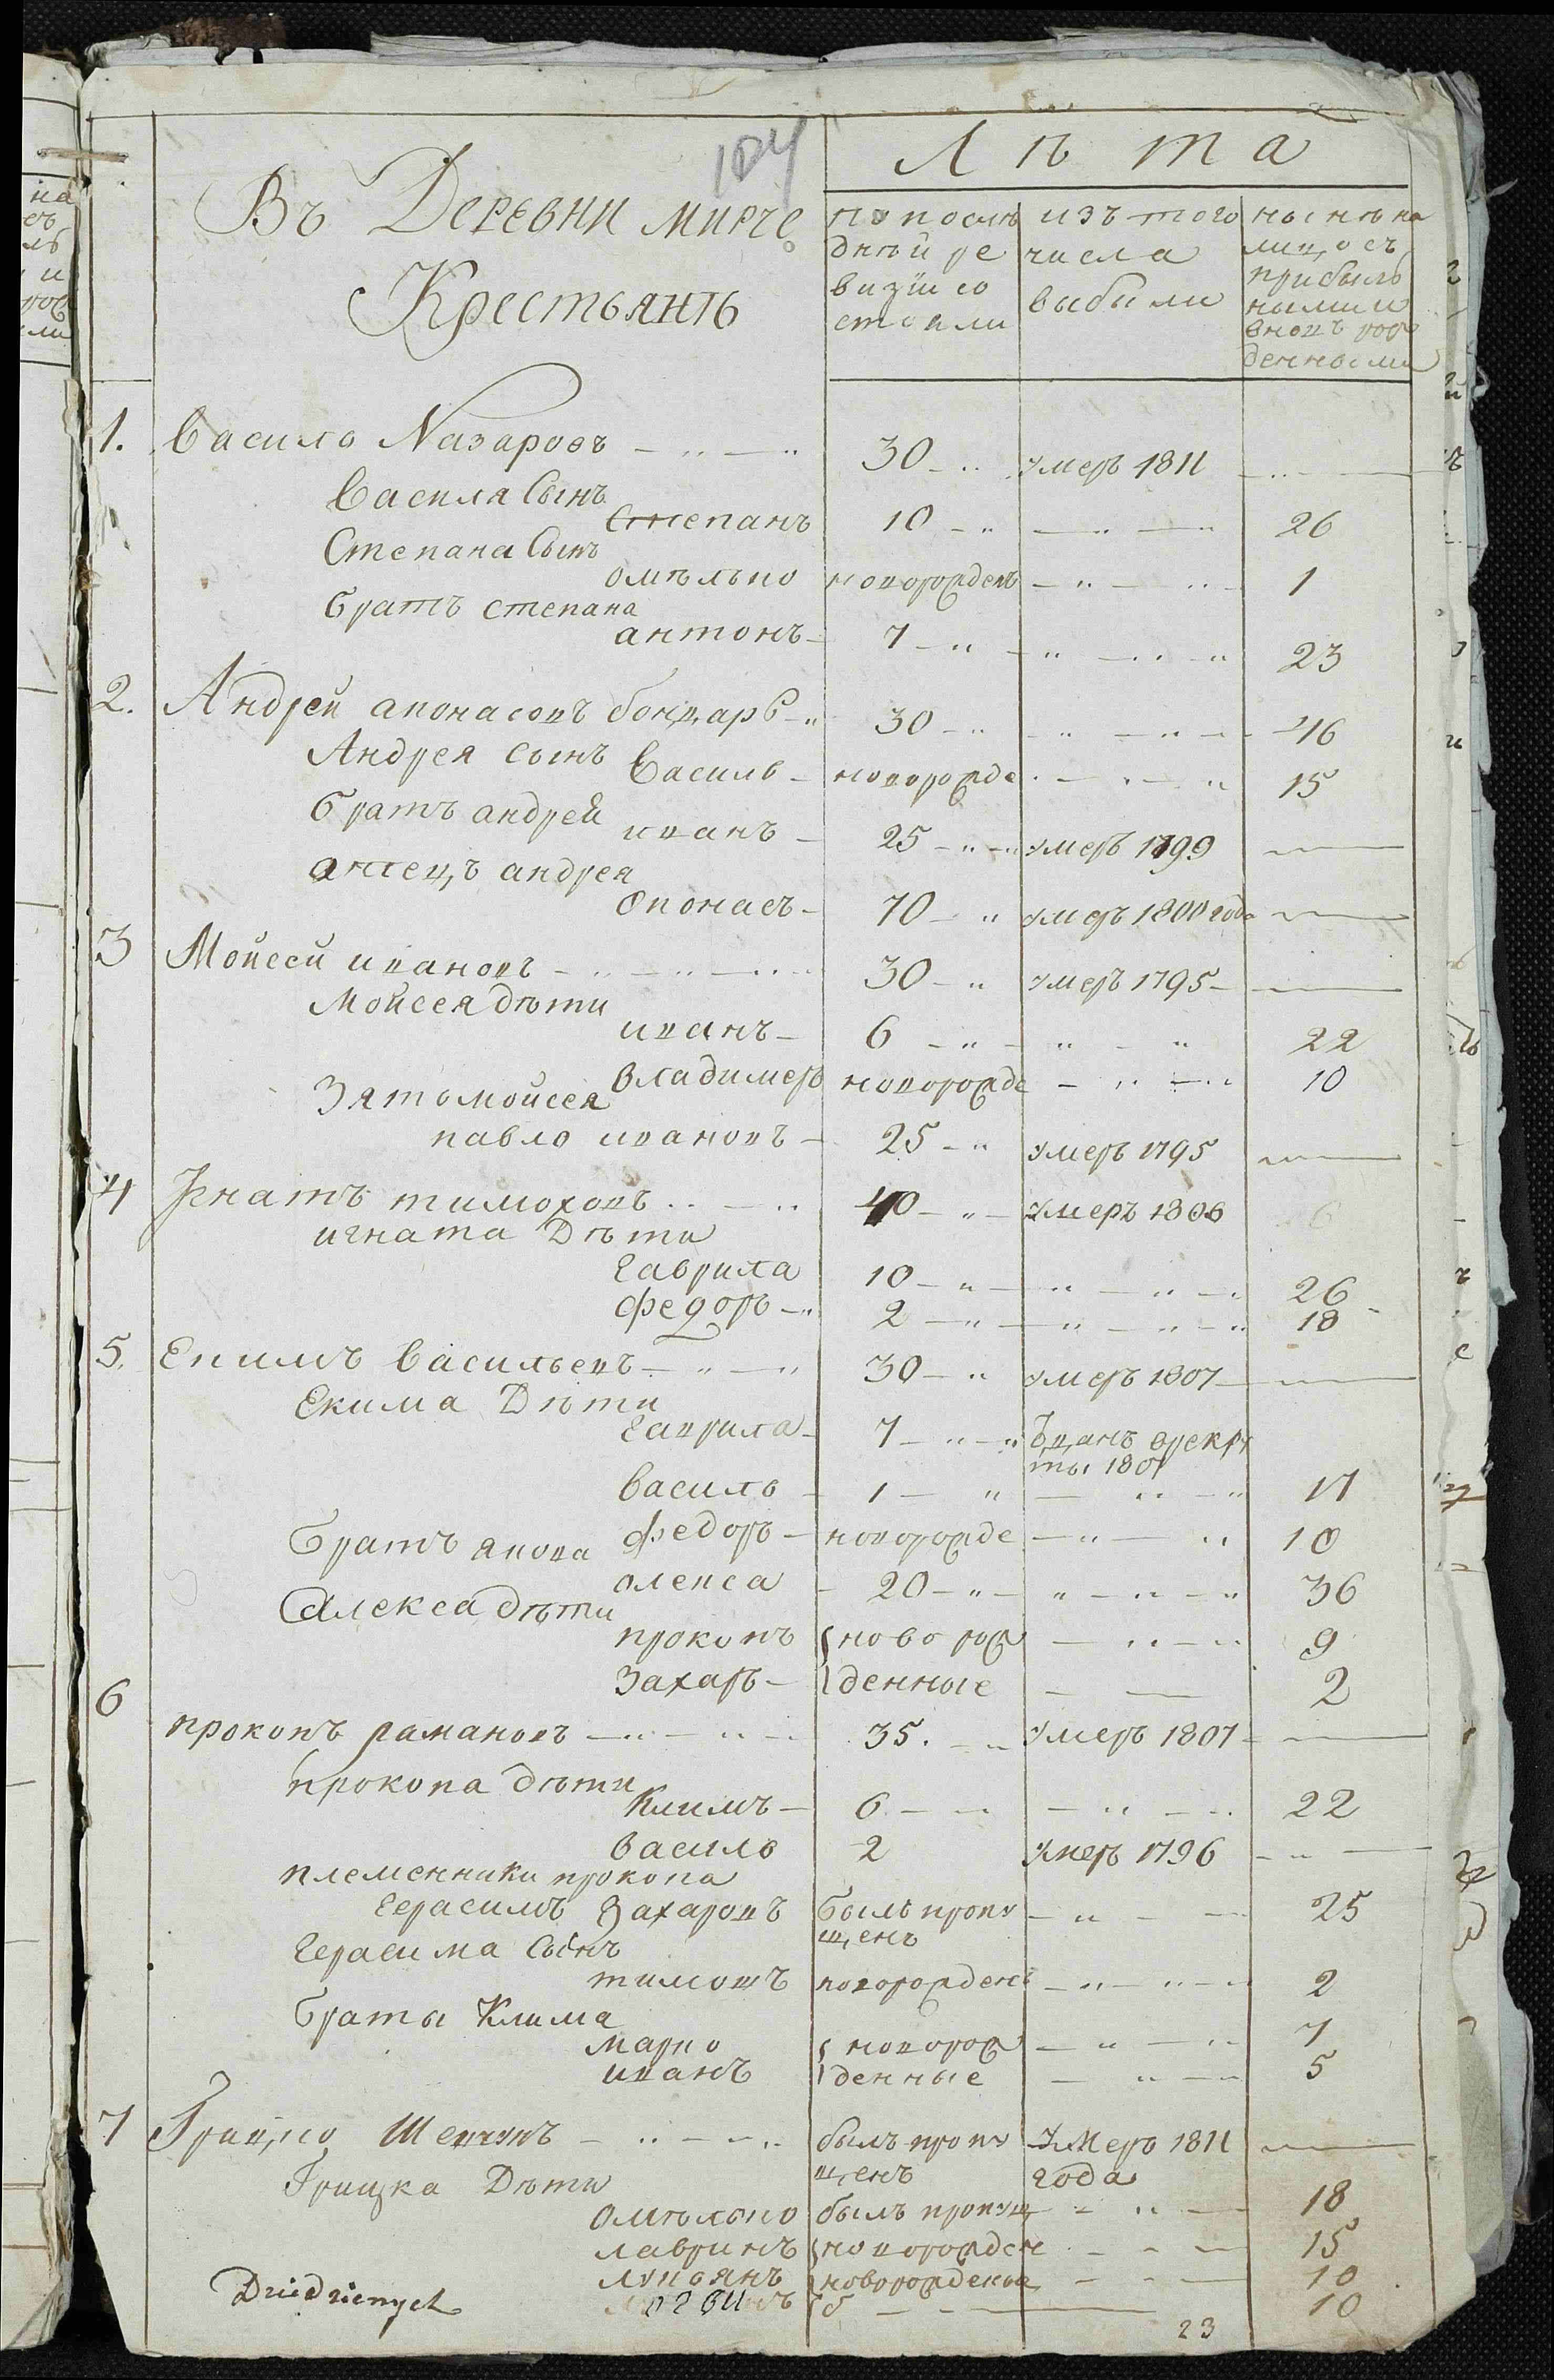 104
Лѣта
Въ Деревни мирче
Крестьянъ
по послѣ
дней ре
визіи со
стояли
изъ того
числа
выбыли
нынѣ на
лицо съ
прибыль
ными и
вновь рож
денными
1. Василь Назаровъ 30 умеръ 1811
Василя Сынъ
Степанъ 10 26
Степана Сынъ
омѣлько новорожденъ 1
братъ степана
антонъ 7 23
2. Андрей апонасовъ бондарь 30 46
Андрея сынъ Василь новорожде 15
братъ андрея
иванъ 25 умеръ 1799
отецъ андрея
Опонасъ 70 умеръ 1800 года
3 Мойсей ивановъ 30 умеръ 1795
Мойсея дѣти
иванъ 6 22
владимеръ новорожде 10
Зять мойсея
павло ивановъ 25 умеръ 1795
4 Игнатъ тимоховъ 40 умеръ 1806
игната Дѣти
Гаврила 10 26
федоръ 2 18
5. Екимъ васильевъ 30 умеръ 1807
Екима Дѣти
Гаврила 7 отданъ врекру
ты 1807
василь 1 17
федоръ новорожде 10
братъ якова
олекса 20 36
Алекса дѣти
прокопъ новорож 9
Захаръ денные 2
6
прокопъ рамановъ 35. умеръ 1807
прокопа дѣти
Климъ 6 22
василь 2 умеръ 1796
племенники прокопа
Герасимъ Захаровъ былъ пропу 25
щенъ
Герасима Сынъ
тимошъ новорожденъ 2
браты Клима
марко новорож 7
иванъ денные 5
7 Грицко Шевчукъ былъ пропу умеръ 1811
щенъ года
Грицка Дѣти
омѣлько былъ пропущ 18
лавринъ новорожден 15
лукьянъ новорожденые 10
10
Dziedzicnych
23